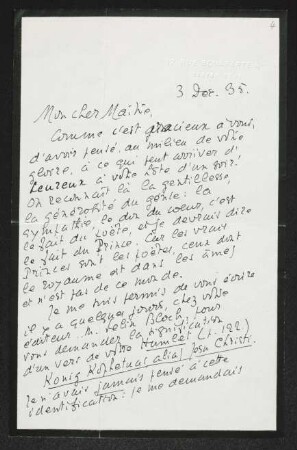 4
3 Dec. 35.
Mon cher Maître,
Comme c'est gracieux à vous,
d'avoir pensé, au milieu de votre
gloire, à ce qui peut arriver d'
heureux à votre hôte d'un soir!
On reconnaît là la gentillesse,
la générosité du génie: la
sympathie, le don du cœur, c'est
le fait du poète, et je devrais dire
le fait du Prince. Car les vrais
Princes sont les poètes, ceux dont
le royaume est dans les âmes
et n'est pas de ce monde.
Je me suis permis de vous écrire
il y a quelques jours, chez votre
éditeur M. Felix Bloch, pour
vous demander la signification
d'un vers de votre Hamlet (p. 122)
König Kophetuas alias Jesu Christi.
Je n'avais jamais pensé à cette
identification: je me demandais